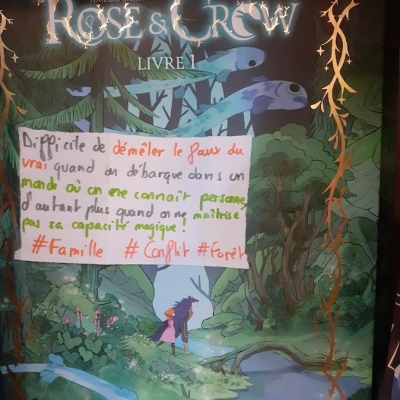 ROSE & CROW
LIVRE 1
Difficile de démêler le faux du
vrai quand on débarque dans un
monde où on ne connaît personne,
d'autant plus quand on ne maîtrise
pas sa capacité magique !
#Famille # Conflit #Forêt